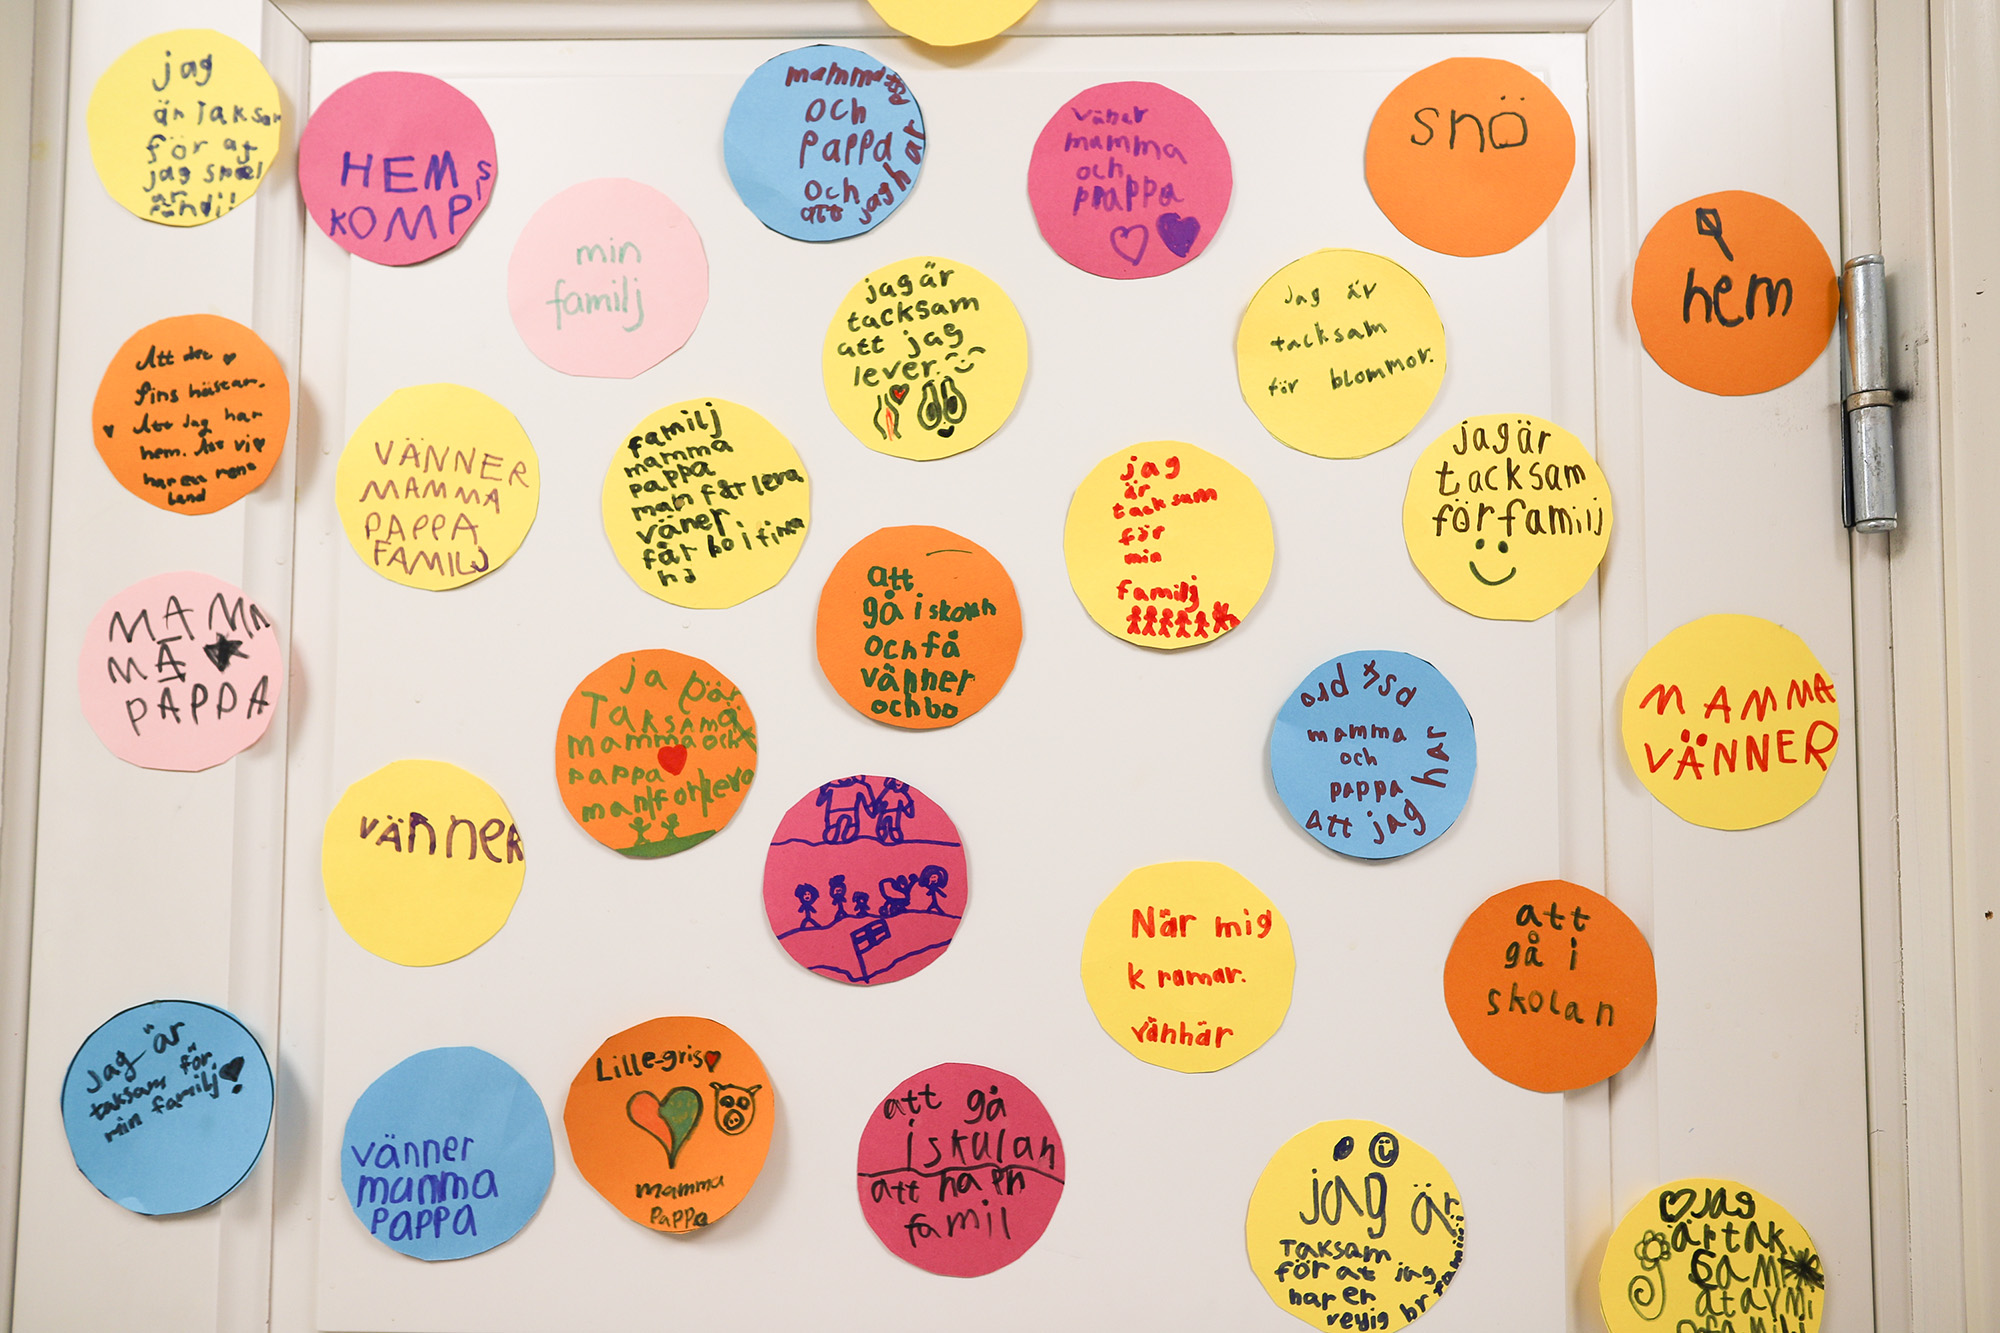 jag
är Taksam
för at
jag spel
HEM
KOMPIS
min
familj
mamma
och
pappa
och
att jag har
väner
mamma
och
prappa
snö
hem
jag är
tacksam
att jag
lever.
Jag är
tacksam
för blommor.
Att det
fins hästar.
Att Jag har
hem. Att vi
har en rent
land
VÄNNER
MAMMA
PAPPA
FAMILJ
familj
mamma
pappa
man får leva
väner
får bo i fina
jag
är
tacksam
för
min
familj
jag är
tacksam
för familj
att
gå i skolan
och få
vänner
och bo
MAMM
MA
PAPPA
Taksam
mamma och
pappa
mamma
och
pappa
att jag har
MAMMA
VÄNNER
vänner
När mig
kramar.
vänhär
att
gå i
skolan
Jag är
taksam för
min familj
vänner
mamma
pappa
Lille-gris
mamma
pappa
att gå
i skulan
att ha en
famil
jag är
Taksam
för at jag
har en
Jag
är tak